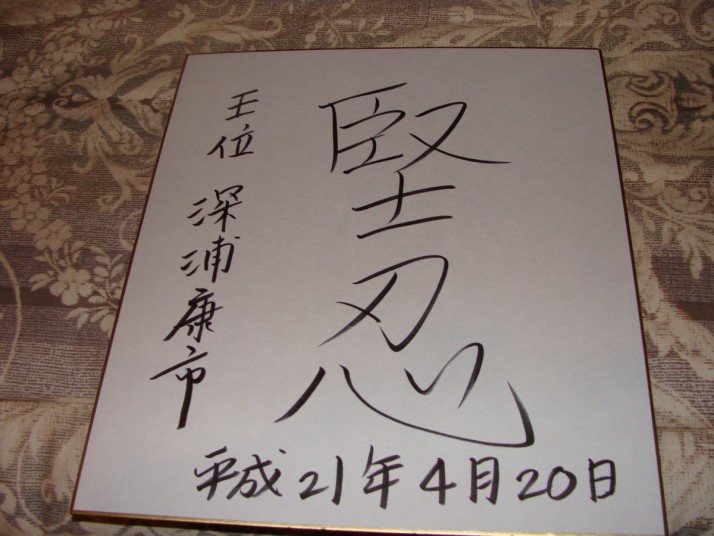 堅忍
王位 深浦康市
平成21年4月20日